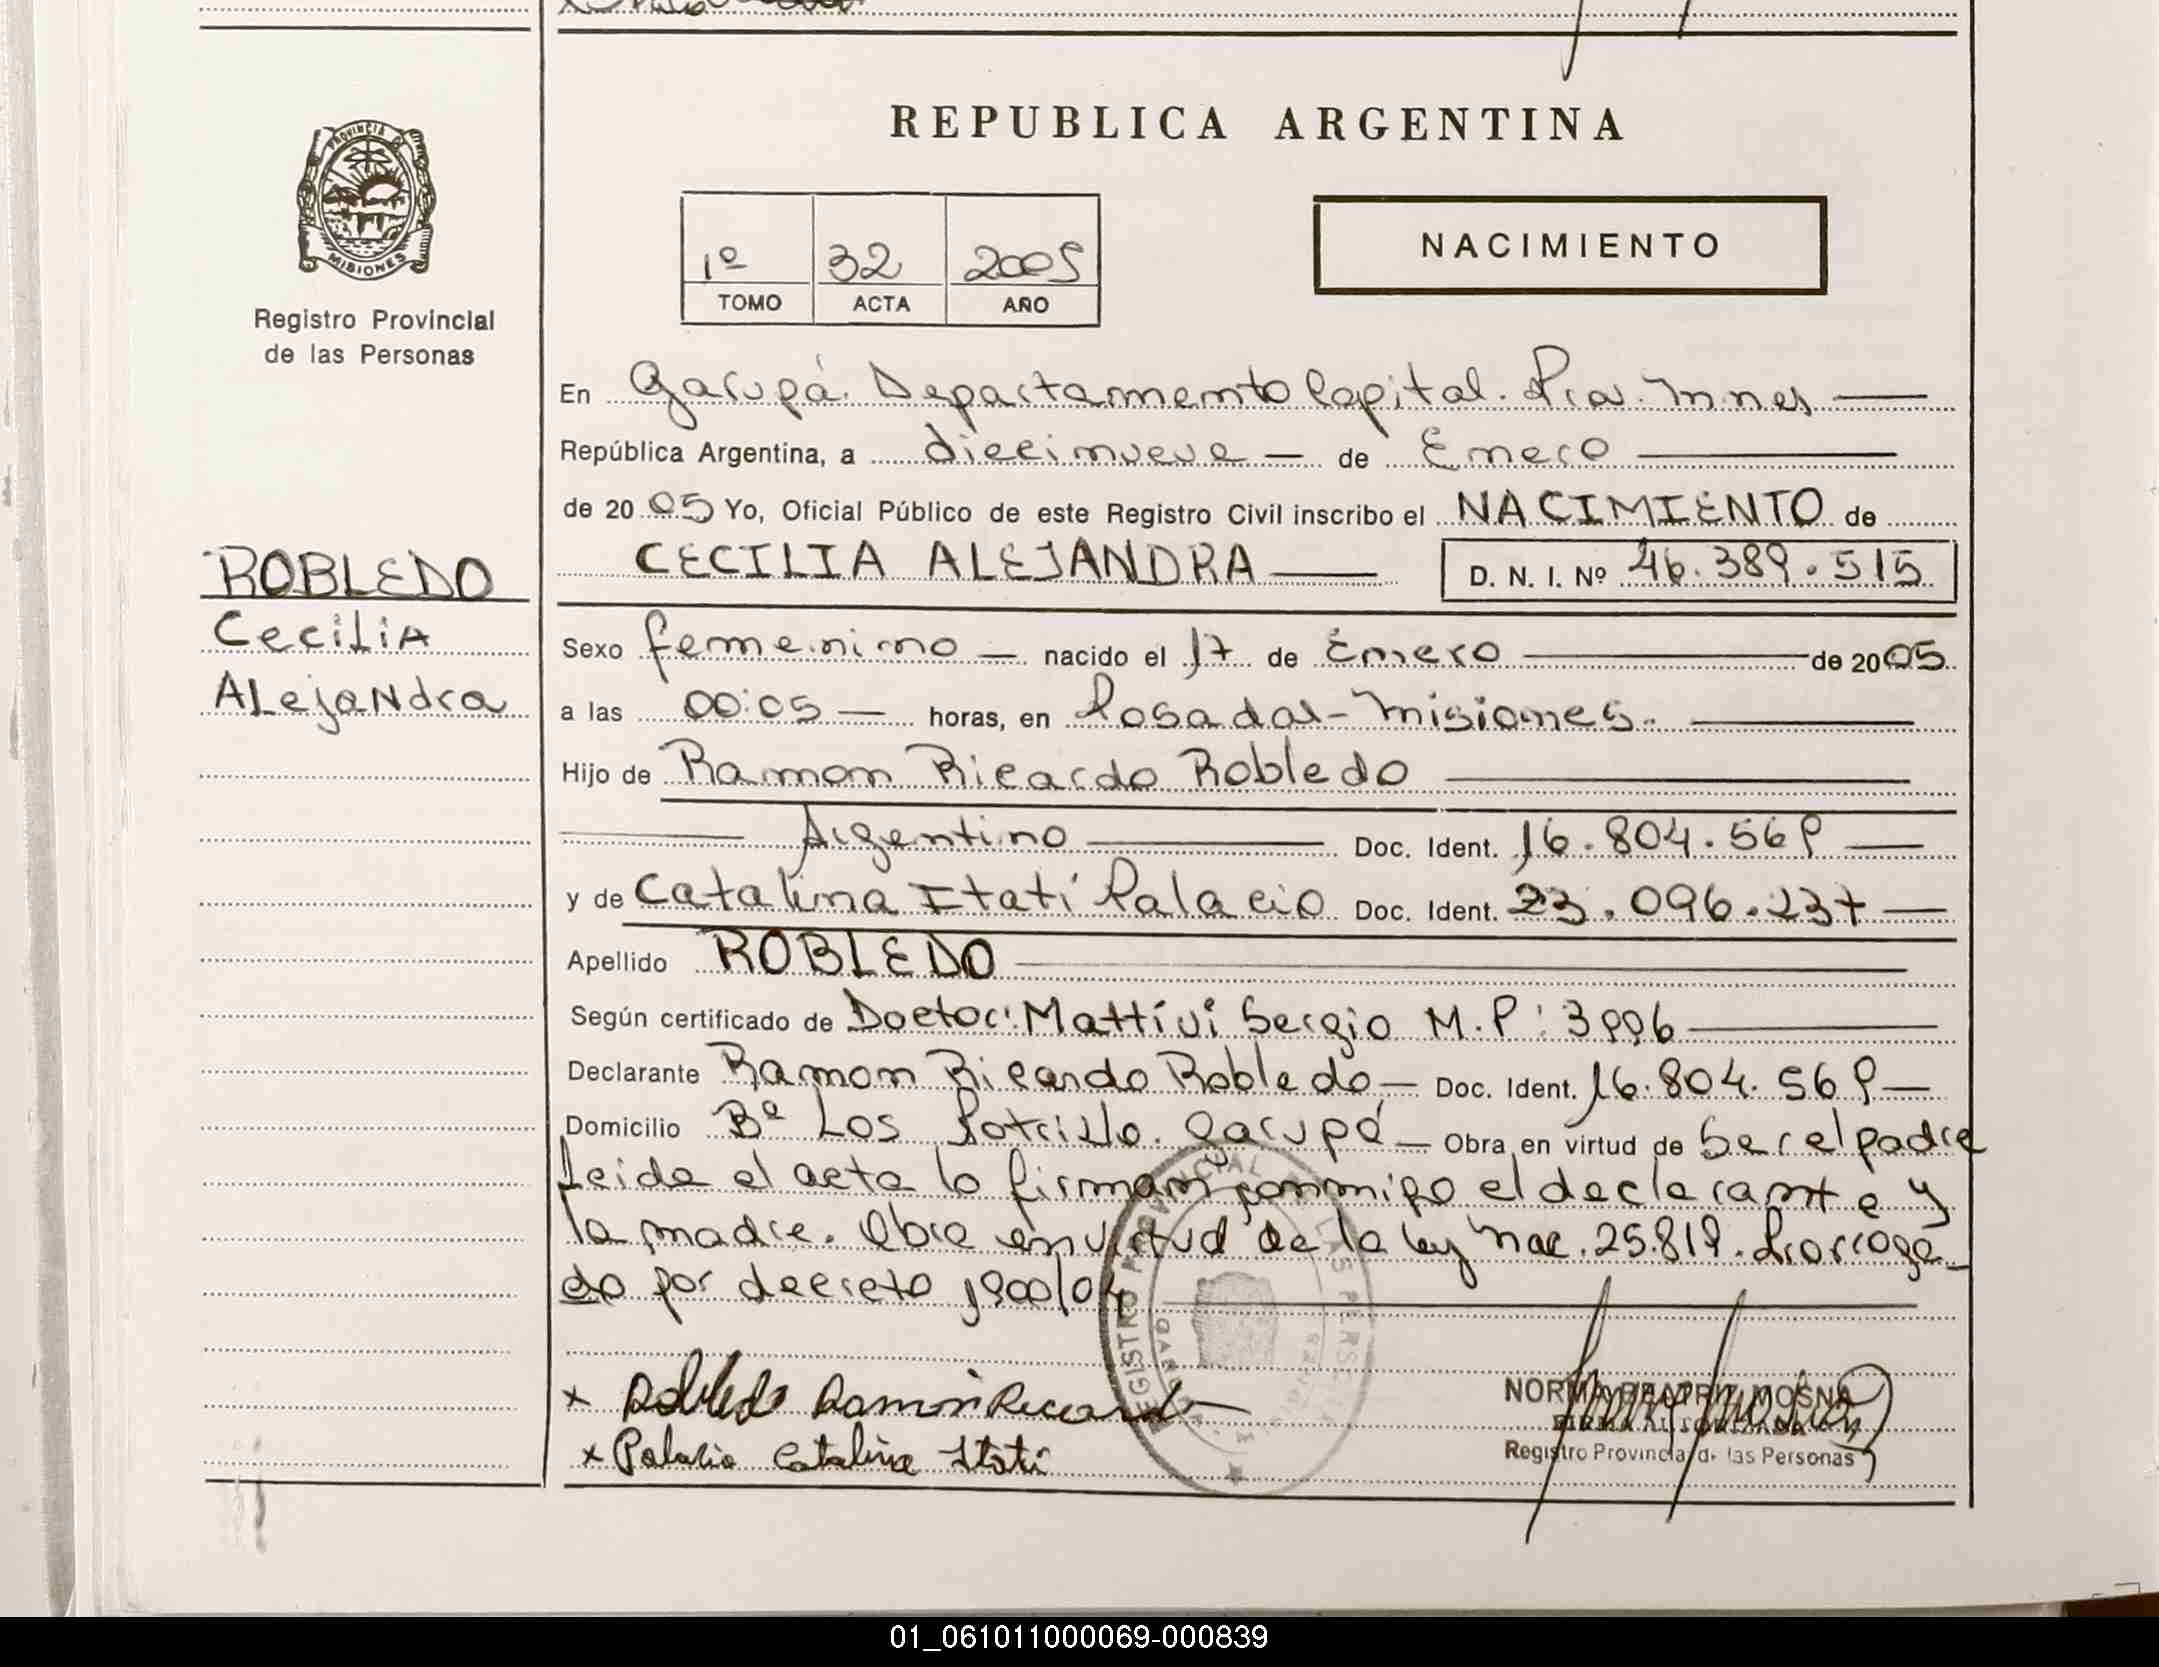 REPUBLICA ARGENTINA
PROVINCIA DE
MISIONES
Registro Provincial
de las Personas
1º 32 2005
TOMO ACTA AÑO
NACIMIENTO
En Garupá. Departamento Capital. Pcia. Mnes
República Argentina, a diecinueve de Enero
de 2005 Yo, Oficial Público de este Registro Civil inscribo el NACIMIENTO de
CECILIA ALEJANDRA D. N. I. Nº 46.389.515
ROBLEDO
Cecilia
Alejandra
Sexo femenino nacido el 17 de Enero de 2005
a las 00:05 horas, en Posadas - Misiones.
Hijo de Ramon Ricardo Robledo
Argentino Doc. Ident. 16.804.569
y de Catalina Itatí Palacio Doc. Ident. 23.096.237
Apellido ROBLEDO
Según certificado de Doctor: Mattivi Sergio M.P: 3996
Declarante Ramon Ricardo Robledo Doc. Ident. 16.804.569
Domicilio Bº Los Potrillo. Garupá Obra en virtud de Ser el padre
Leida el acta lo firman conmigo el declarante y
la madre. Obra en virtud de la ley Nac. 25.819. Prorroga
do por decreto 1900/04
REGISTRO PROVINCIAL DE LAS PERS
x Robledo Ramon Ricardo
x Palacio Catalina Itati
NORMA BEATRIZ MOSNA
FIRMA AUTORIZADA
Registro Provincial de las Personas
01_061011000069-000839